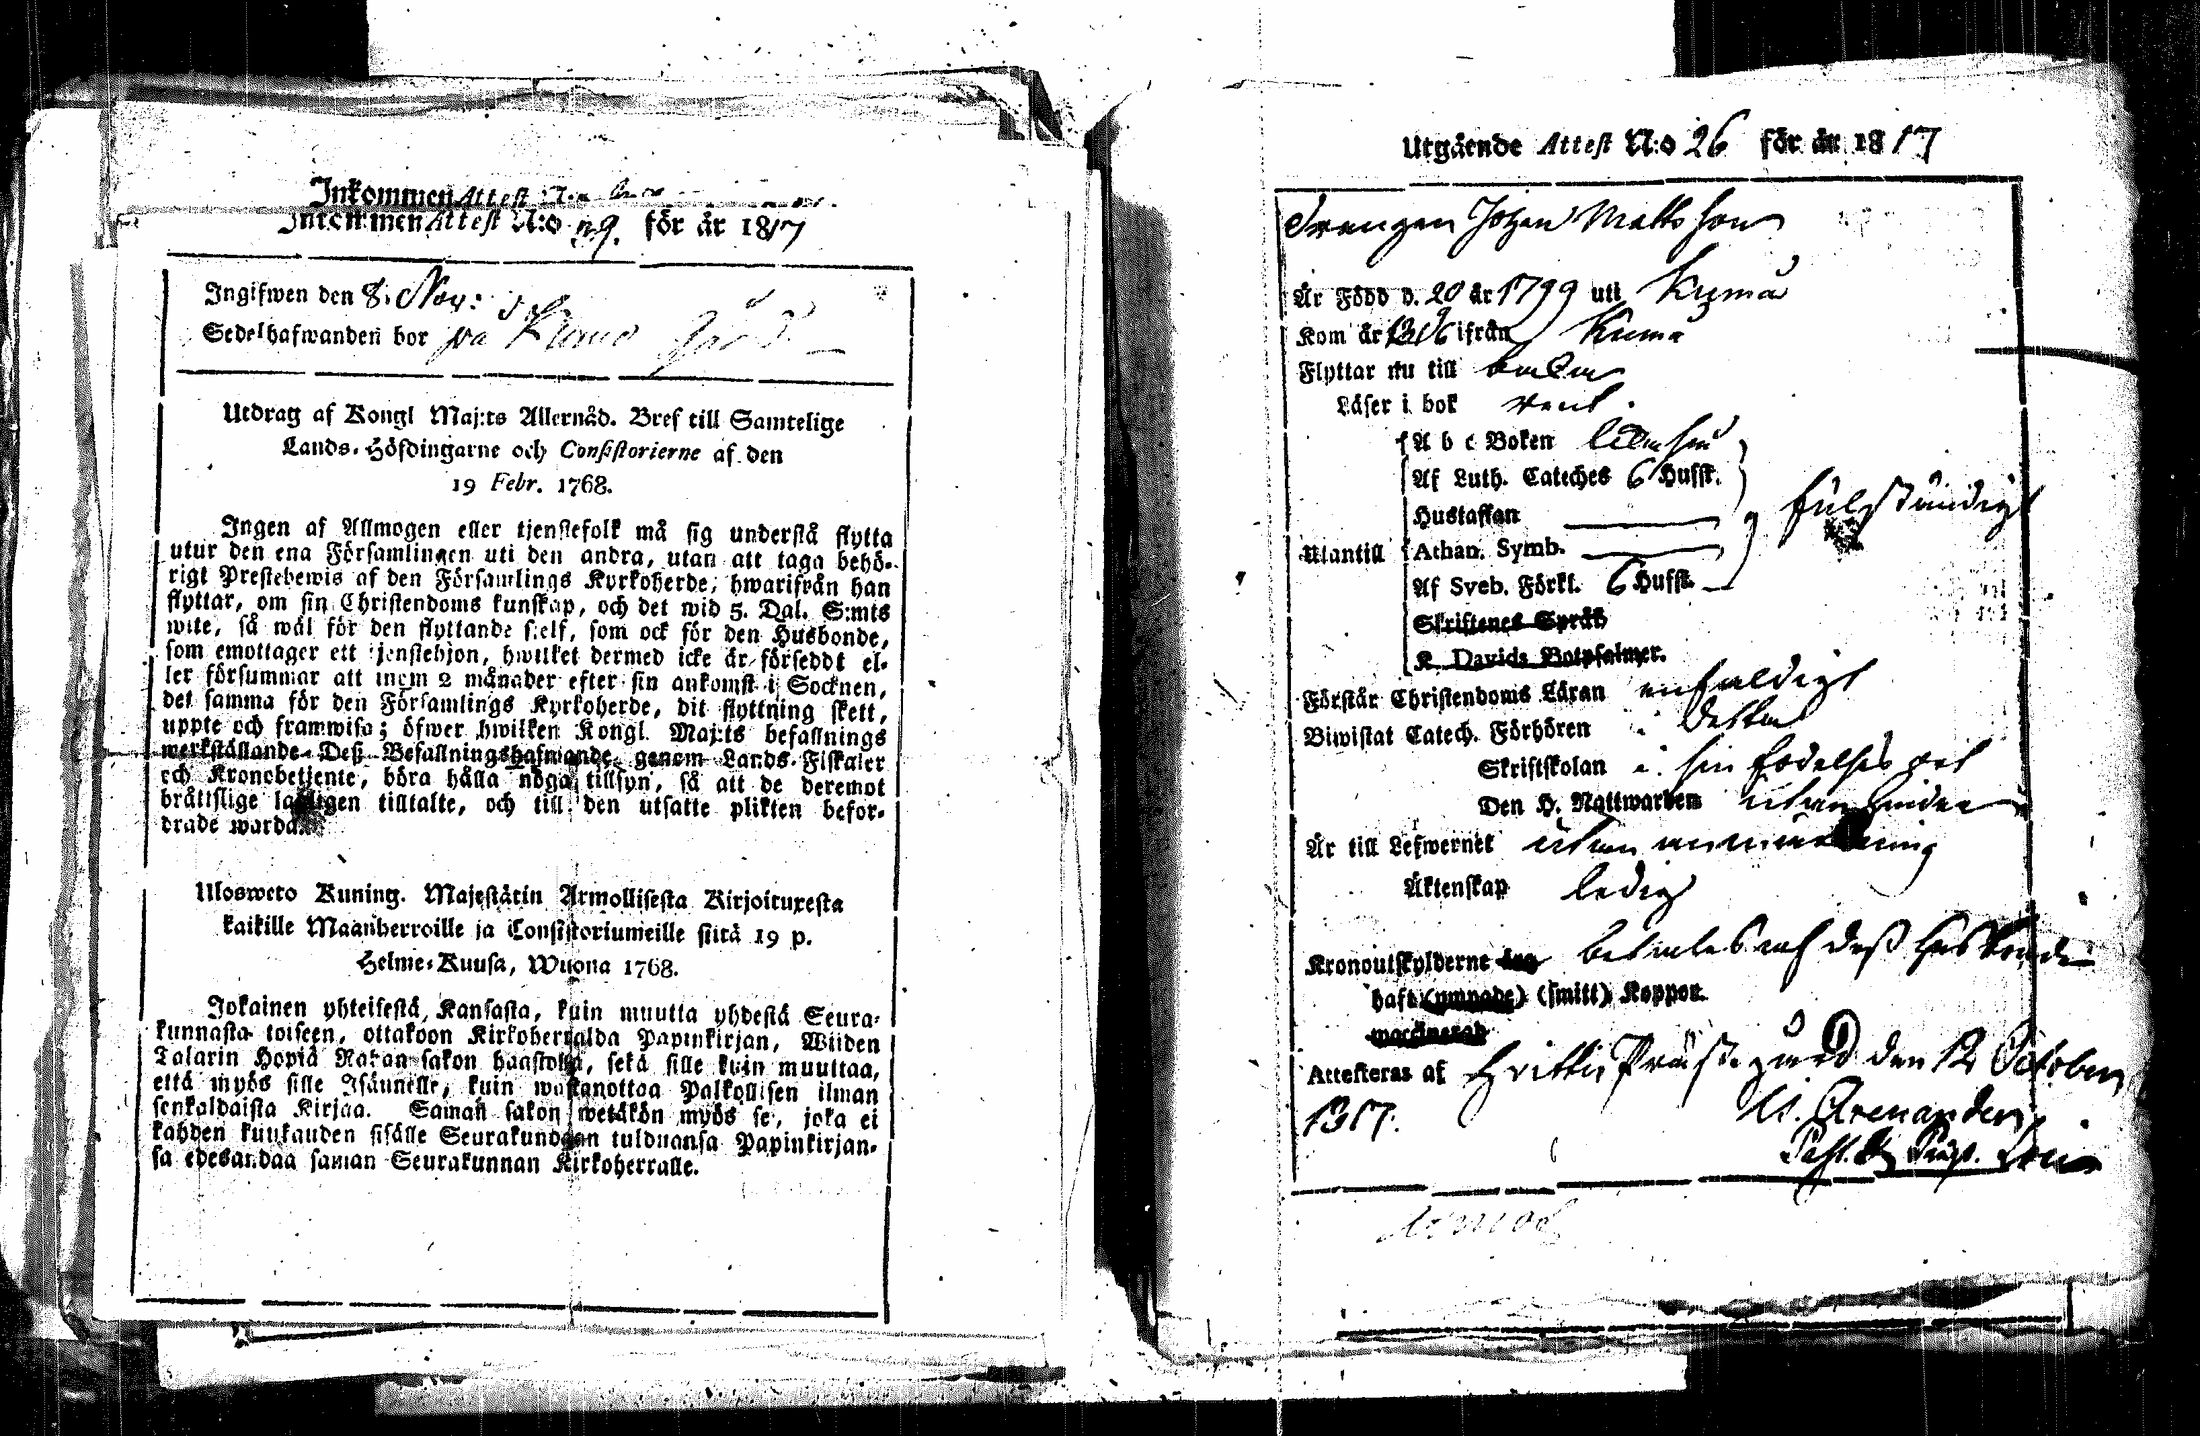 Inkommen Attest N:o
Inkommen Attest N:o 29. för år 1817
Ingifwen den 8. Nov:
Sedelhafwanden bor på Kumo Gård
Utdrag af Kongl Maj:ts Allernåd. Bref till Samtelige
Lands-Höfdingarne och Consistorierne af den
19 Febr. 1768.
Ingen af Allmogen eller tjenstefolk må sig understå flytta
utur den ena Församlingen uti den andra, utan att taga behö-
rigt Prestebewis af den Församlings Kyrkoherde, hwarifrån han
flyttar, om sin Christendoms kunskap, och det wid 5. Dal. S:mts
wite, så wäl för den flyttande sielf, som ock för den Husbonde,
som emottager ett tjenstehjon, hwilket dermed icke är försedt el-
ler försummar att inom 2 månader efter sin ankomst i Socknen,
det samma för den Församlings Kyrkoherde, dit flyttning skett,
uppte och framwisa; öfwer hwilken Kongl. Maj:ts befallnings
werkställande Deß Befallningshafwande genom Lands-Fiskaler
och Kronobetjente, böra hålla nöga tillsyn, så att de deremot
bråttslige lagligen tilltalte, och till den utsatte plikten befor-
drade warda.
Ulosweto Kuning. Majestätin Armollisesta Kirjoituxesta
kaikille Maanherroille ja Consistoriumeille siitä 19 p.
Helme-Kuusa, Wuona 1768.
Jokainen yhteisestä Kansasta, kuin muutta yhdestä Seura-
kunnasta toiseen, ottakoon Kirkoherralda Papinkirjan, Wiiden
Talarin Hopiä Rahan sakon haastolla, sekä sille kuin muuttaa,
että myös sille Isännelle, kuin wastanottaa Palkollisen ilman
senkaldaista Kirjaa. Saman sakon wetäkön myös se, joka ei
kahden kuukauden sisälle Seurakundaan tulduansa Papinkirjan-
sa edesandaa saman Seurakunnan Kirkoherralle.
Utgående Attest N:o 26 för år 1817
Drengen Johan Matts son
Är Född d. 20 år 1799 uti Kumå
Kom år 1816 ifrån Kumå
Flyttar nu till
Läser i bok rent.
Utantill
A b c Boken
Af Luth. Cateches 6 Hufst.
Hustaflan
fulständigt
Athan. Symb.
Af Sveb. Förkl. 6 Hufst.
Skriftenes Språk
K. Davids Botpsalmer.
Förstår Christendoms Läran enfaldigt
Biwistat Catech. Förhören
Skriftskolan i sin födelses ort
Den H. Nattwarden utan hinder
Är till Lefwernet utan anmärkning
Äktenskap ledig
Kronoutskylderne betalas af deß Husbonde
haft (ympade) (smitt) Koppor.
waccinerad
Attesteras af Hvittis Prästegård den 12 October
1817.